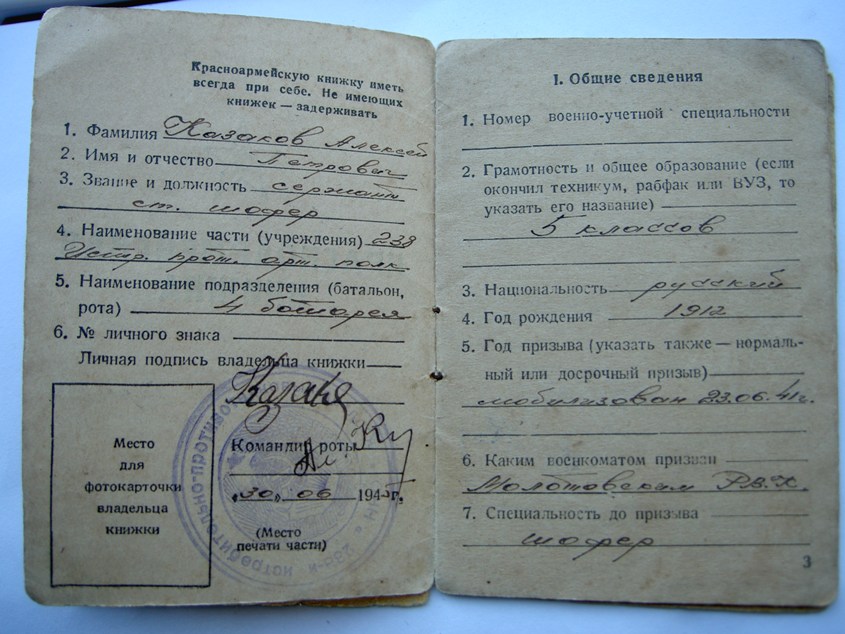 Красноармейскую книжку иметь
всегда при себе. Не имеющих
книжек — задерживать
1. Фамилия Казаков Алексей
2. Имя и отчество Петрович
3. Звание и должность сержант
ст. шофер
4. Наименование части (учреждения) 238
Истр. прот. арт. полк
5. Наименование подразделения (батальон,
рота) 4 батарея
6. № личного знака
Личная подпись владельца книжки
Казаков
Командир роты
„30„ 06 194 г.
(Место
печати части)
Место
для
фотокарточки
владельца
книжки
I. Общие сведения
1. Номер военно-учетной специальности
2. Грамотность и общее образование (если
окончил техникум, рабфак или ВУЗ, то
указать его название)
5 классов
3. Национальность русский
4. Год рождения 1912
5. Год призыва (указать также — нормаль-
ный или досрочный призыв)
мобилизован 23.06.41г.
6. Каким военкоматом призван
Молотовским Р.В.К.
7. Специальность до призыва
шофер
3